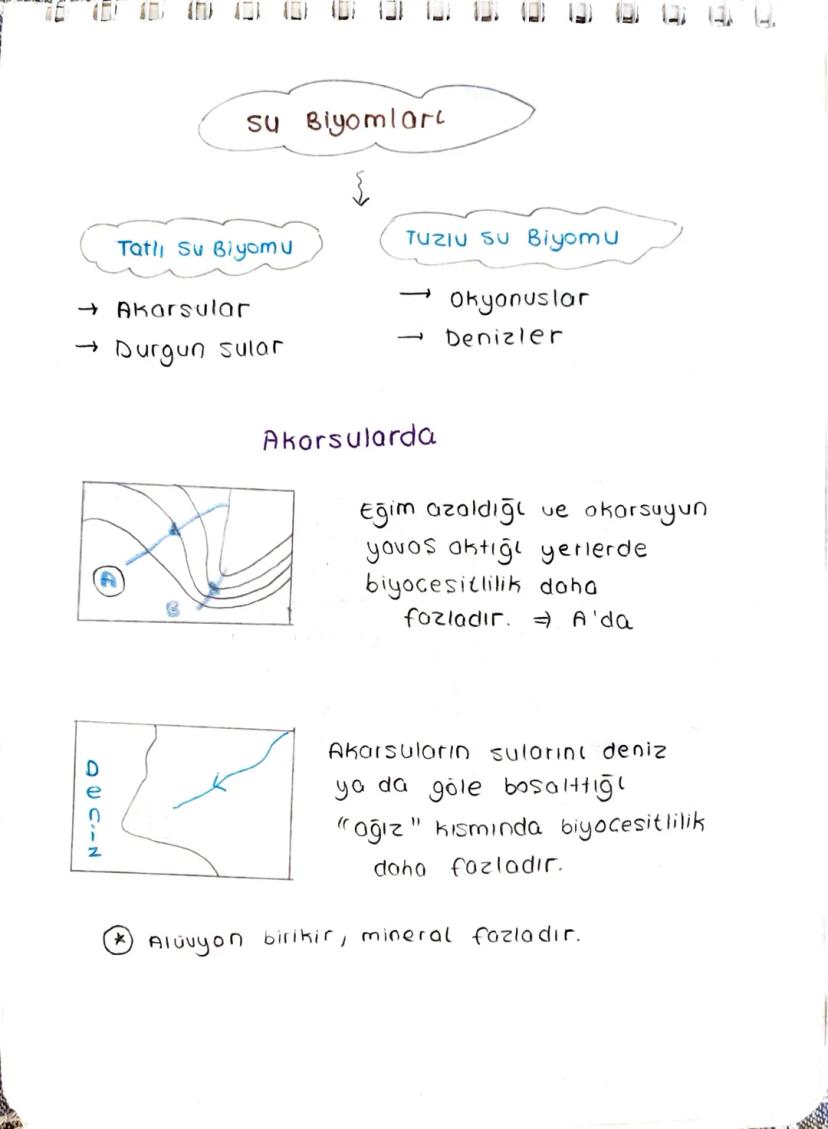 Su Biyomları
Tatlı Su Biyomu
→ Akarsular
→ Durgun sular
Tuzlu Su Biyomu
→ Okyanuslar
→ Denizler
Akarsularda
A
B
Eğim azaldığı ve akarsuyun
yavaş aktığı yerlerde
biyoçesitlilik daha
fazladır. ⇒ A'da
Deniz
Akarsuların sularını deniz
ya da göle bosalttığı
"ağız" kısmında biyocesitlilik
daha fazladır.
* Alüvyon birikir, mineral fazladır.